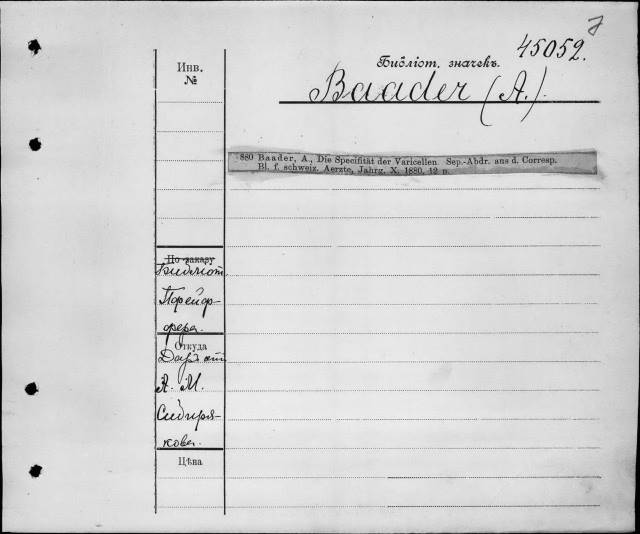 45052.
Библіот. значекъ.
Baader (A.).
Инв.
№
880 Baader, A., Die Specifität der Varicellen. Sep.-Abdr. aus d. Corresp.
Bl. f. schweiz. Aerzte, Jahrg. X. 1880. 12 p.
По заказу
Библіот.
Пфейф-
фера.
Откуда
Даръ отъ
А. М.
Сибиря-
кова.
Цѣна